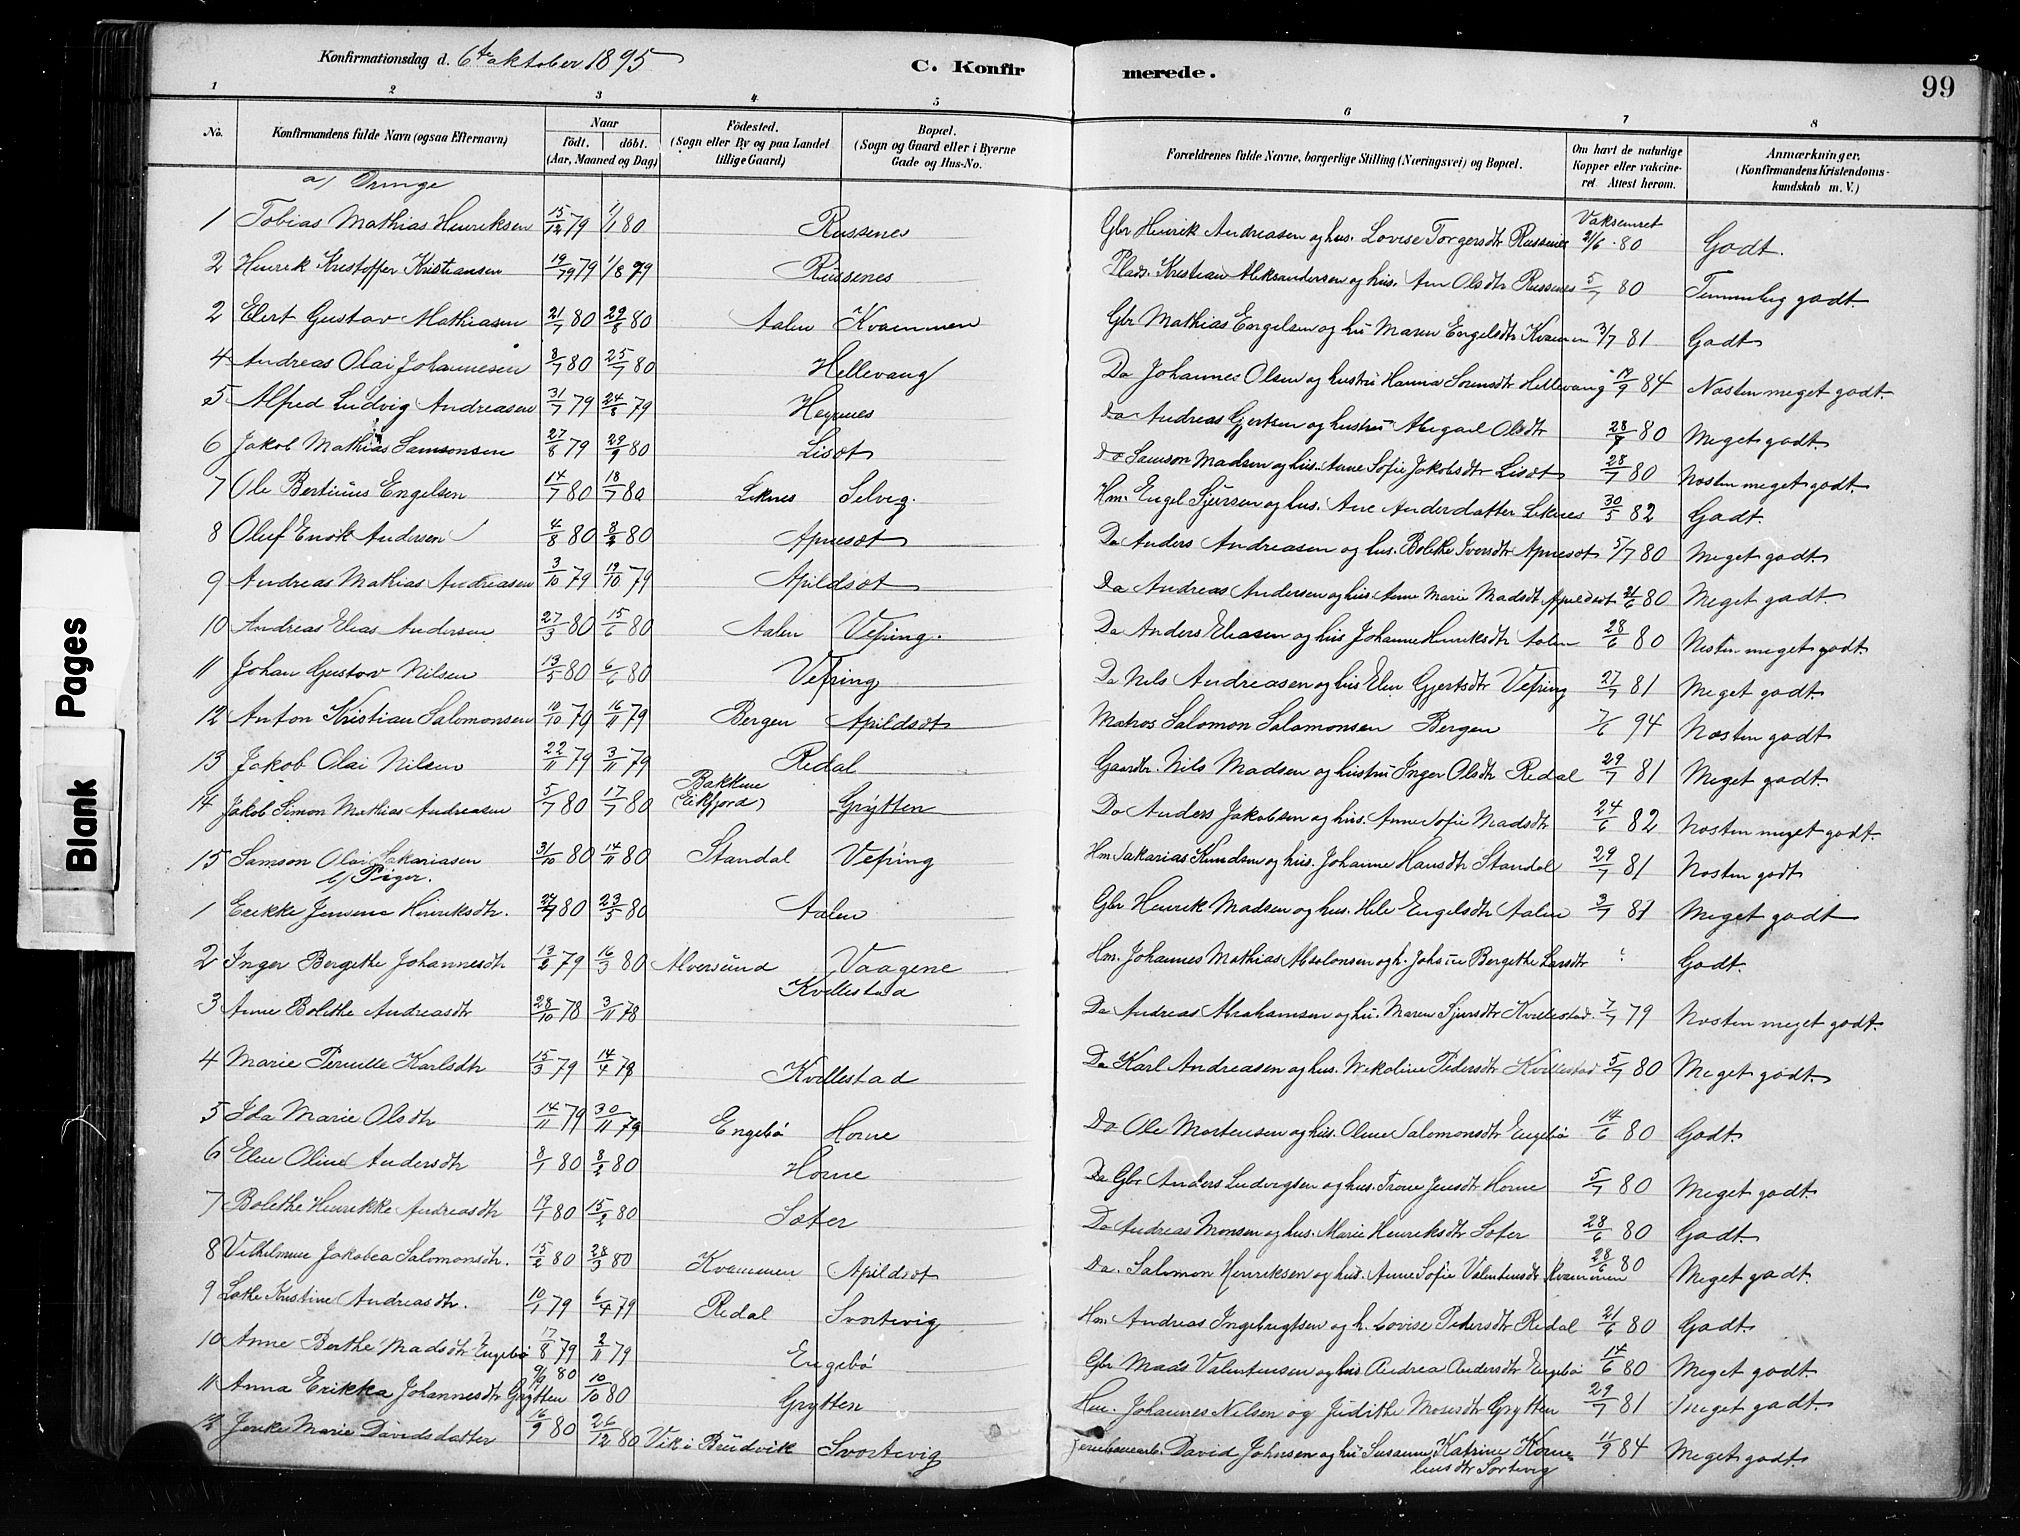 Konfirmationsdag d. 6te oktober 1895
C. Konfirmerede.
99
1 2 3 4 5 6 7 8
No. Konfirmandens fulde Navn (ogsaa Efternavn) Naar födt. döbt. (Aar, Maaned og Dag) Födested. (Sogn eller By og paa Landet tillige Gaard) Bopæl. (Sogn og Gaard eller i Byerne Gade og Hus-No. Forældrenes fulde Navne, borgerlige Stilling (Næringsvei) og Bopæl. Om havt de naturlige Kopper eller vakcineret. Attest herom. Anmærkninger. (Konfirmandens Kristendomskundskab m. V.)
a) Drenge
1 Tobias Mathias Henriksen 15/12 79 1/1 80 Russenes Gbr Henrik Andreasen og hus. Lovise Torgersdtr Russenes Vaksineret 21/6 80 Godt.
2 Henrik Kristoffer Kristiansen 19/79 79 1/8 79 Russenes Plads. Kristian Aleksandersen og hus. Ane Olsdtr Russenes 5/7 80 Temmelig godt.
2 Elert Gustav Mathiasen 21/7 80 29/8 80 Aalen Kvammen Gbr Mathias Engelsen og hu Maren Engelsdtr Kvammen 3/7 81 Godt
4 Andreas Olai Johannesen 8/7 80 25/7 80 Hellevang Do Johannes Olsen og hustru Hanna Sørensdtr Hellevang 17/9 84 Næsten meget godt.
5 Alfred Ludvig Andreasen 31/7 79 24/8 79 Heynes do Andreas Gjertsen og hustru Abigael Olsdtr 28/7 80 Meget godt.
6 Jakob Mathias Samsonsen 27/8 79 29/9 80 Lisæt do Samson Madsen og hus. Anne Sofie Jakobsdtr Lisæt 28/7 80 Næsten meget godt.
7 Ole Bertinus Engelsen 14/7 80 18/7 80 Leknes Selvig. Hm. Engel Sjursen og hus. Ane Andersdatter Leknes 30/5 82 Godt.
8 Oluf Enok Andersen 4/8 80 8/8 80 Apnesæt Do Anders Andreasen og hus. Bolethe Iversdtr Apnesæt 5/7 80 Meget godt.
9 Andreas Mathias Andreasen 3/10 79 19/10 79 Apildsæt Do Andreas Andersen og hus. Anne Marie Madsdt Apildsæt 21/6 80 Meget godt.
10 Andreas Elias Andersen 27/3 80 15/6 80 Aalen Vefring. Do Anders Eliasen og hus Johanne Henriksdtr Aalen 28/6 80 Næsten meget godt.
11 Johan Gustav Nilsen 13/5 80 6/6 80 Vefring Do Nils Andreasen og hus Elen Gjertsdtr Vefring 27/7 81 Meget godt
12 Anton Kristian Salomonsen 10/10 79 16/11 79 Bergen Apildsæt Matros Salomon Salamonsen Bergen 7/6 94 Næsten godt
13 Jakob Olai Nilsen 22/11 79 3/11 79 Redal Gaardbr. Nils Madsen og hustru Inger Olsdtr Redal 29/7 81 Meget godt
14 Jakob Simon Mathias Andreasen 5/7 80 17/7 80 Bakkene (Eikfjord) Grytten Do Anders Jakobsen og hus. Anne Sofie Madsdtr 24/6 82 Næsten meget godt.
15 Samson Olai Sakariasen 31/10 80 14/11 80 Standal Vefring Hm Sakarias Knudsen og hus. Johanne Hansdtr Standal 29/7 81 Næsten godt
b) Piger.
1 Erikke Jensine Hinriksdtr. 27/4 80 23/5 80 Aalen Gbr Henrik Madsen og hus. Hele Engelsdtr Aalen 3/7 81 Meget godt
2 Inger Bergethe Johannesdtr 13/2 79 16/3 80 Alversund Vaagene Hm. Johannes Mathias Absolonsen og h. Johane Bergethe Larsdtr ? Godt.
3 Anne Bolethe Andreasdtr 28/10 78 3/11 78 Kvellestad Do Andreas Abrahamsen og hu. Maren Sjursdtr Kvellestad. 7/7 79 Næsten meget godt.
4 Marie Pernille Karlsdtr 15/3 79 14/4 79 Kvellestad Do Karl Andreasen og hus. Nekoline Pedersdtr Kvellestad 5/7 80 Meget godt.
5 Ida Marie Olsdtr 14/11 79 30/11 79 Engebø Horne Do Ole Mortensen og hus. Oline Salomonsdtr Engebø 14/6 80 Godt.
6 Elen Oline Andersdtr 8/1 80 8/2 80 Horne Do Gbr Anders Ludvigsen og hus. Trone Jensdtr Horne 5/7 80 Meget godt.
7 Bolethe Henrikke Andreasdtr 19/1 80 15/2 80 Sæter Do Andreas Monsen og hus. Marie Henriksdtr Sæter 28/6 80 Godt.
8 Vilhelmine Jakobea Salomonsdtr. 15/2 80 28/3 80 Kvammen Apildsæt Do. Salomon Henriksen og hus. Anne Sofie Valentinsdtr Kvammen 28/6 80 Meget godt.
9 Lothe Kristine Andreasdtr. 10/1 79 6/4 79 Redal Svortevig Hm Andreas Ingebrigtsen og h. Lovise Pedersdtr Redal 21/6 80 Godt.
10 Anne Berthe Madsdtr Engebø 17/8 79 2/11 79 Engebø Gbr Mads Valentinsen og hus Andrea Andersdtr Engebø 14/6 80 Meget godt.
11 Anna Erikka Johannesdtr Grytten 9/6 80 10/10 80 Grytten Hm. Johannes Nilsen og Judithe Mosesdtr Grytten 29/7 81 Meget godt.
12 Jenke Marie Davidsdatter 16/9 80 26/12 80 Vik i Brudvik Svortevig David Johnsen og hu Susanne Katrine Korneliusdtr Sortevig 11/9 84 Meget godt.
Blank Pages